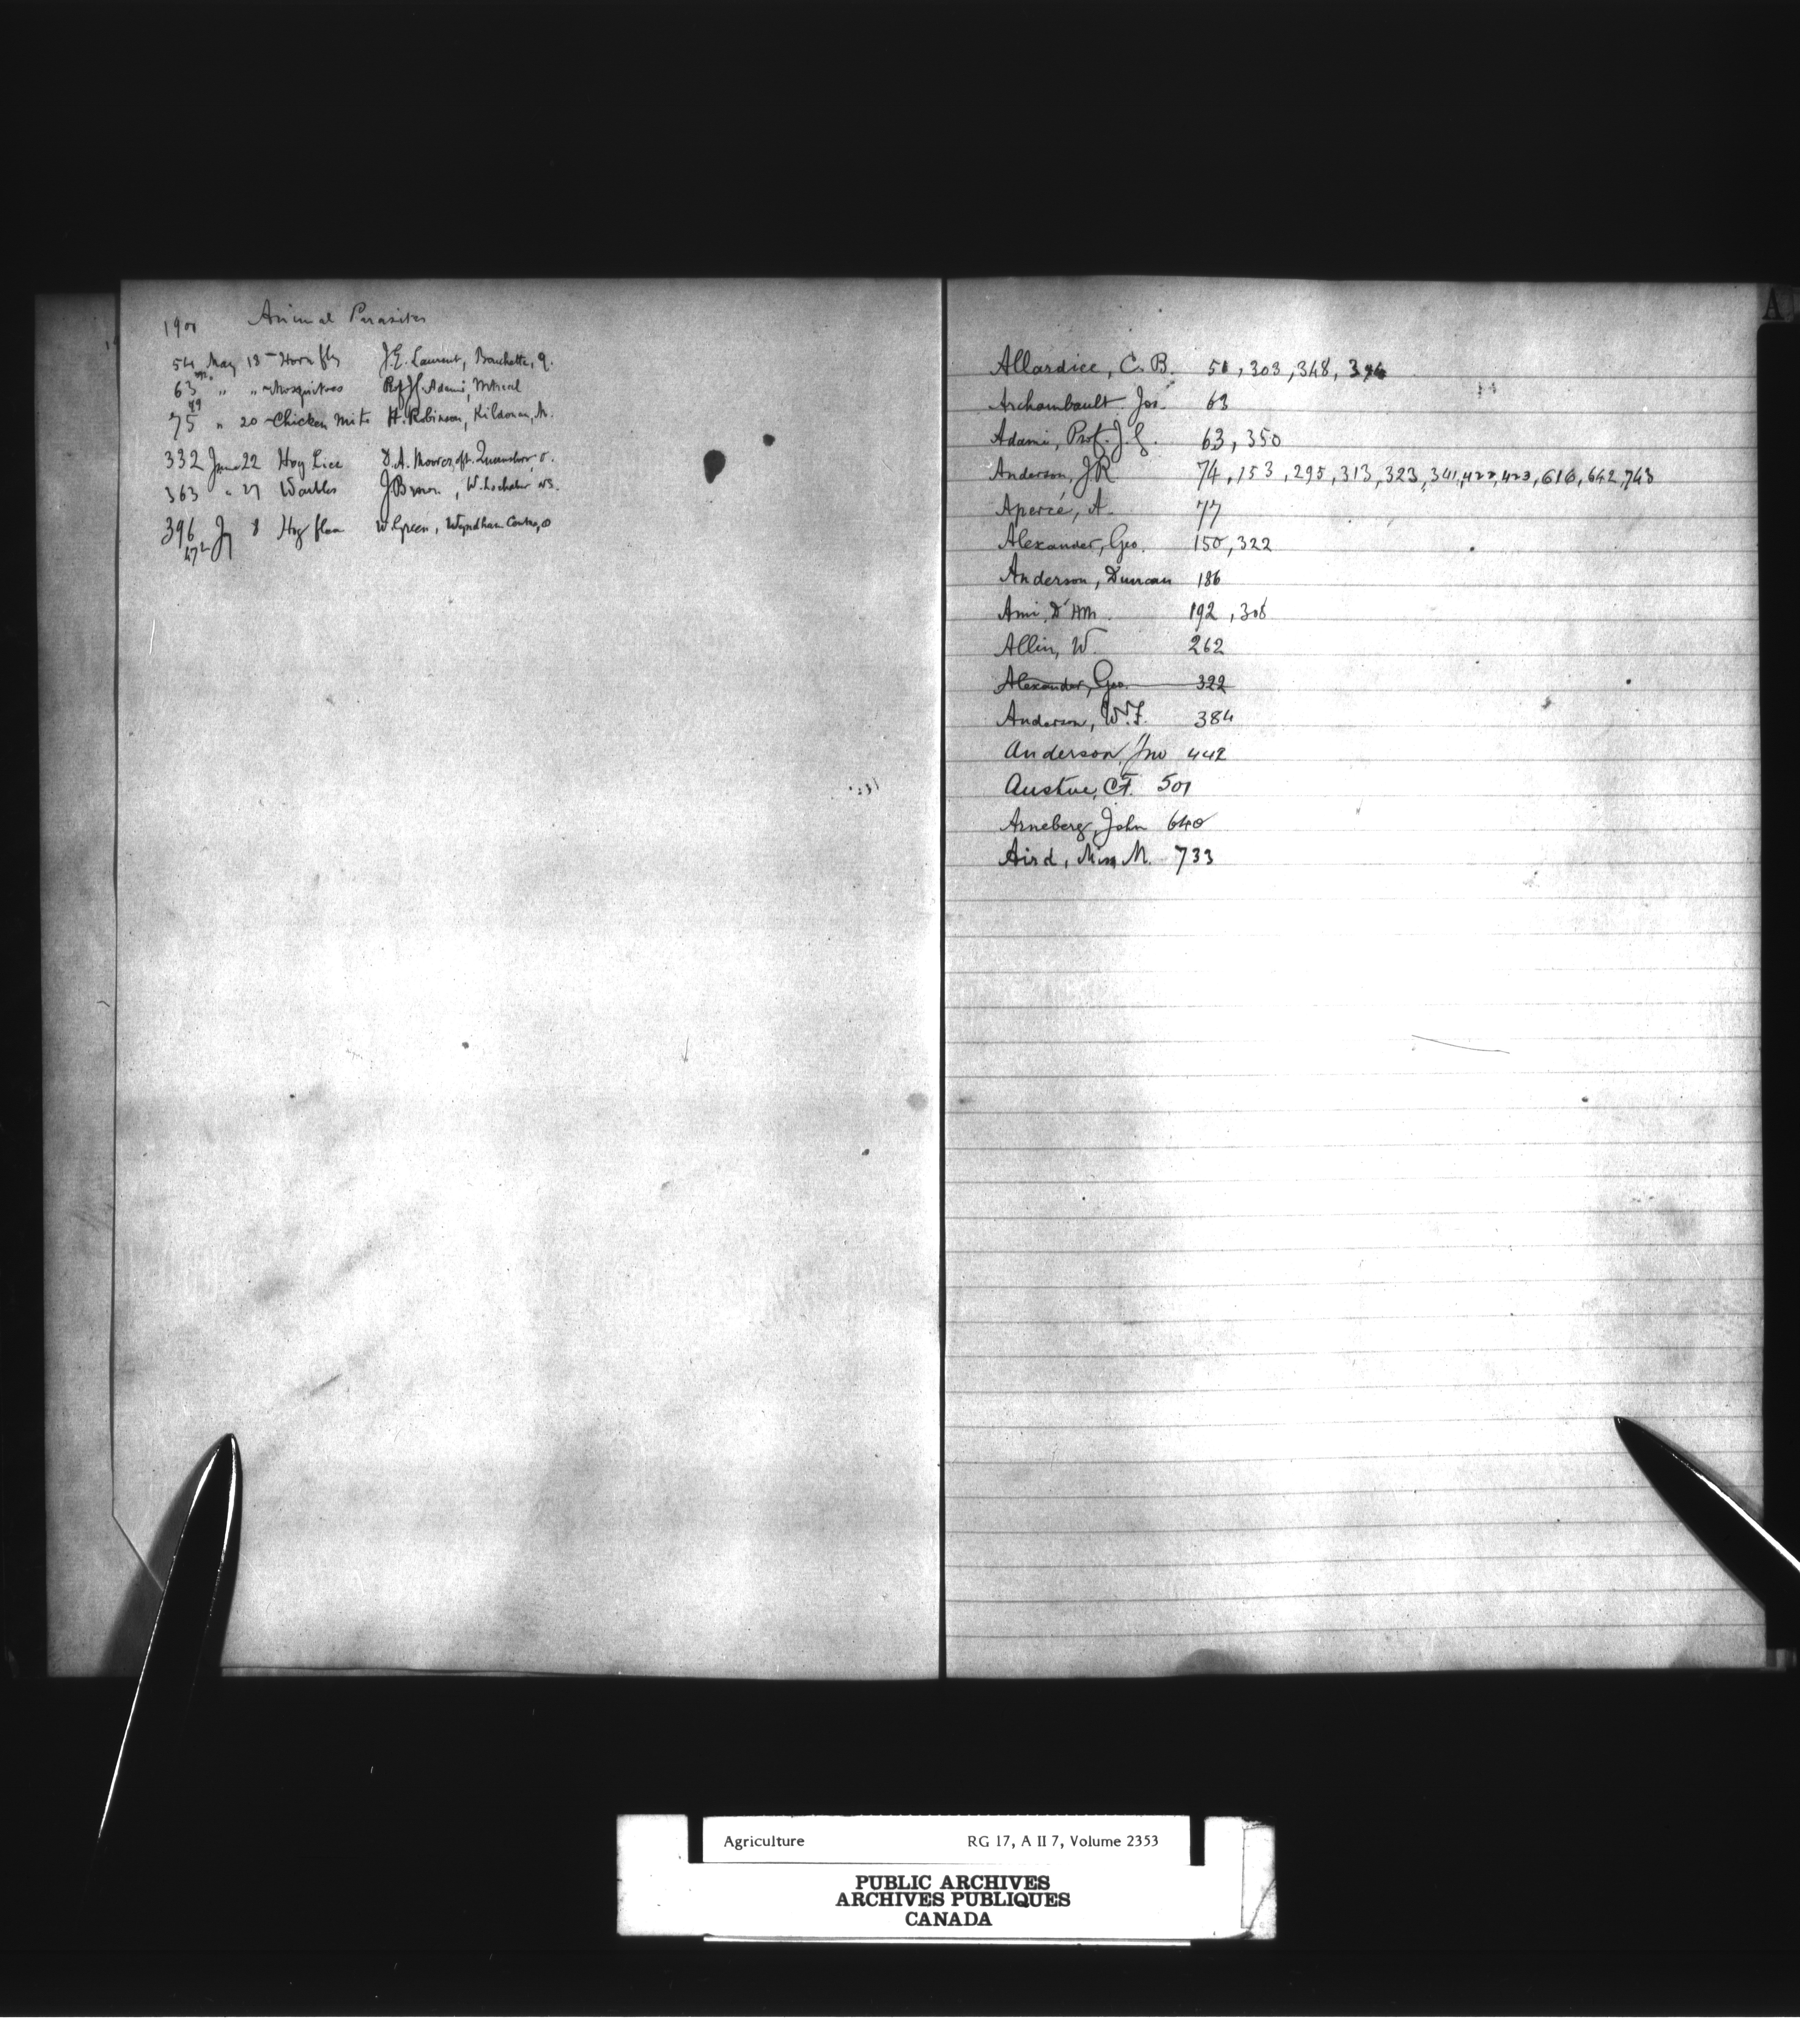 Animal Parasites
54 May 18 - Horn fly J.E. Laurent, Bouchette, Q.
63 " " - Mosquitoes Prof J.G. Adami, Mtreal
75 " 20 - Chicken Mite H. Robinson, Kildonan, M.
332 June 22 Hog Lice D.A. O.
363 " 27 Warbles J Brown, W. Lochaber NS.
396 Jy 8 Hog flea W Green, Wyndham Centre, O
472
A
Allardice, C. B. 51, 303, 348, 394
Archambault Jos. 63
Adami, Prof. J.G. 63, 350
Anderson, J.R. 74, 153, 295, 313, 323, 341, 422, 423, 616, 642, 743
Aperce, A. 77
Alexander, Geo. 150, 322
Anderson, Duncan 186
Ami, Dr HM. 192, 308
Allin, W. 262
Alexander, Geo. 322
Anderson, W.F. 384
Anderson, Jno 442
C.F. 501
Arneberg, John 640
Aird, Miss M. 733
Agriculture RG 17, A II 7, Volume 2353
PUBLIC ARCHIVES
ARCHIVES PUBLIQUES
CANADA